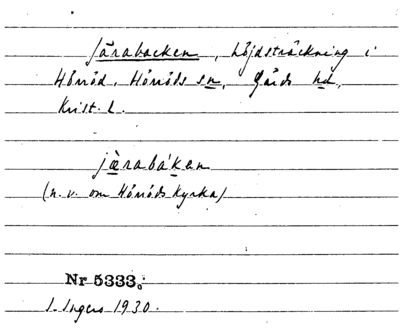 Järabacken, höjdsträckning i
Hörröd, Hörröds sn, Gärds hd,
Krist. l.
jæ̀raba'kan
(n.v. om Hörröds kyrka)
Nr 5333.
I. Ingers 1930.